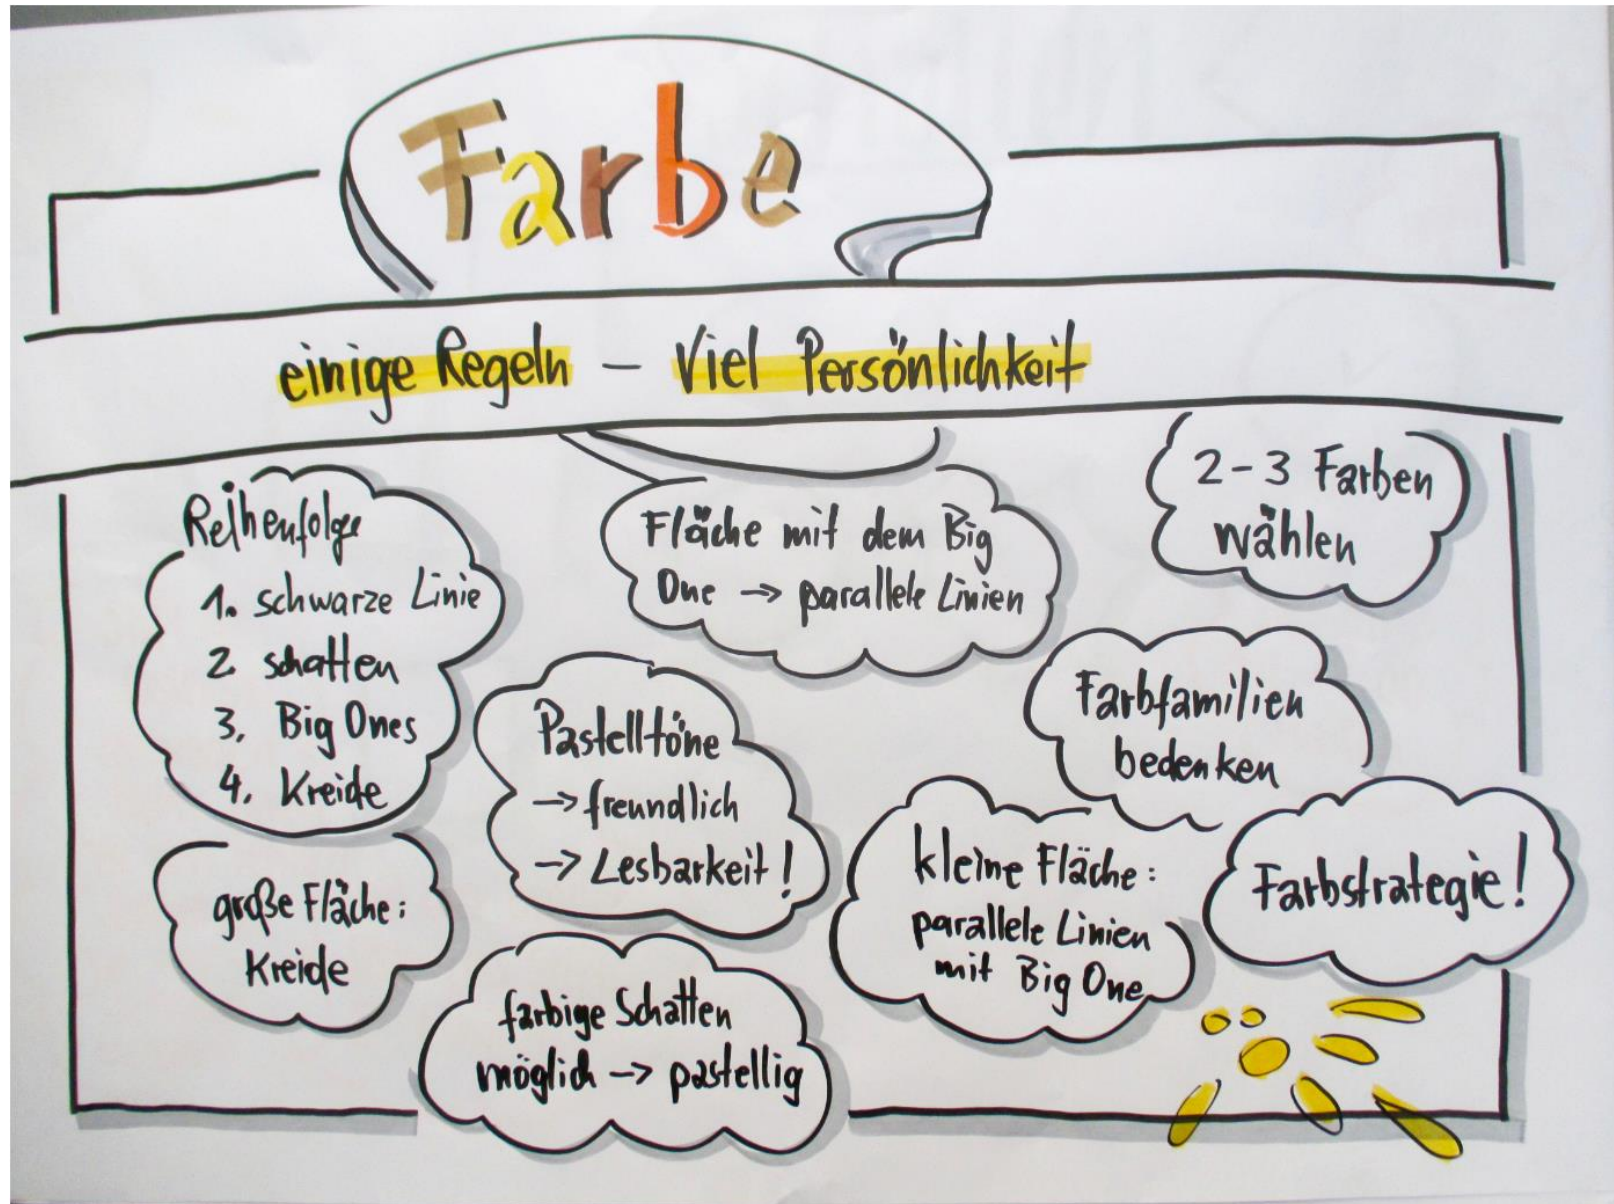 Farbe
einige Regeln – Viel Persönlichkeit
Reihenfolge
1. schwarze Linie
2. schatten
3. Big Ones
4. Kreide
Fläche mit dem Big
One → parallele Linien
2-3 Farben
wählen
Pastelltöne
→ freundlich
→ Lesbarkeit!
Farbfamilien
bedenken
große Fläche:
Kreide
kleine Fläche:
parallele Linien
mit Big One
Farbstrategie!
farbige Schatten
möglich → pastellig